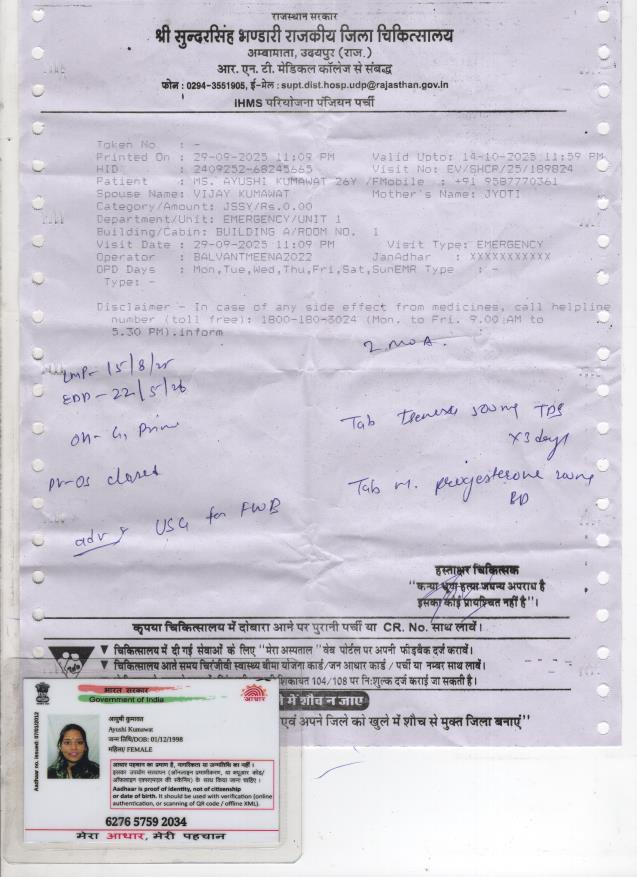 राजस्थान सरकार
श्री सुन्दरसिंह भण्डारी राजकीय जिला चिकित्सालय
अम्बामाता, उदयपुर (राज.)
आर. एन. टी. मेडिकल कॉलेज से संबद्ध
फोन : 0294-3551905, ई-मेल : supt.dist.hosp.udp@rajasthan.gov.in
IHMS परियोजना पंजियन पर्ची
Token No : -
Printed On : 29-09-2025 11:09 PM Valid Upto: 14-10-2025 11:59 PM
HID : 2409252-68245665 Visit No: EV/SHCP/25/189824
Patient : MS. AYUSHI KUMAWAT 26Y /FMobile : +91 9587770361
Spouse Name: VIJAY KUMAWAT Mother's Name: JYOTI
Category/Amount: JSSY/Rs.0.00
Department/Unit: EMERGENCY/UNIT 1
Building/Cabin: BUILDING A/ROOM NO. 1
Visit Date : 29-09-2025 11:09 PM Visit Type: EMERGENCY
Operator : BALVANTMEENA2022 JanAdhar : XXXXXXXXXXX
OPD Days : Mon,Tue,Wed,Thu,Fri,Sat,SunEMR Type : -
Type: -
Disclaimer - In case of any side effect from medicines, call helpline
number (toll free): 1800-180-3024 (Mon. to Fri. 9.00 AM to
5.30 PM).inform
2 MOA.
LMP- 15/8/25
EDD- 22/5/26
OH- G, Primi
PV-OS closed
adv USG for FWB
Tab 500mg TDS
x3 days
Tab M. progesterone 200mg
BD
हस्ताक्षर चिकित्सक
"कन्या भ्रूण हत्या जघन्य अपराध है
इसका कोई प्रायश्चित नहीं है"।
कृपया चिकित्सालय में दोबारा आने पर पुरानी पर्ची या CR. No. साथ लावें।
▼ चिकित्सालय में दी गई सेवाओं के लिए "मेरा अस्पताल" वेब पोर्टल पर अपनी फीडबैक दर्ज करावें।
▼ चिकित्सालय आते समय चिरंजीवी स्वास्थ्य बीमा योजना कार्ड/जन आधार कार्ड / पर्ची या नम्बर साथ लावें।
शिकायत 104/108 पर निःशुल्क दर्ज कराई जा सकती है।
में शौच न जाए
एवं अपने जिले को खुले में शौच से मुक्त जिला बनाएं"
भारत सरकार
Government of India
आधार
Aadhaar no. issued: 07/01/2012
आयुषी कुमावत
Ayushi Kumawat
जन्म तिथि/DOB: 01/12/1998
महिला/ FEMALE
आधार पहचान का प्रमाण है, नागरिकता या जन्मतिथि का नहीं।
इसका उपयोग सत्यापन (ऑनलाइन प्रमाणीकरण, या क्यूआर कोड/
ऑफलाइन एक्सएमएल की स्कैनिंग) के साथ किया जाना चाहिए।
Aadhaar is proof of identity, not of citizenship
or date of birth. It should be used with verification (online
authentication, or scanning of QR code / offline XML).
6276 5759 2034
मेरा आधार, मेरी पहचान